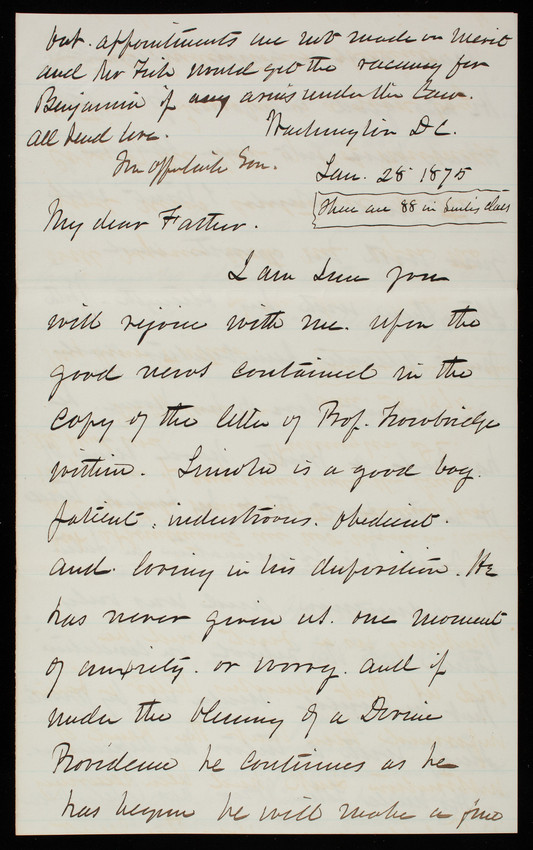 but. appointments are not made on merit
and Mr Fish would get the vacancy for
Benjamin if any arises under the Law.
All send love.
Yr affectionate Son.
Washington DC.
Jan. 28 1875
There are 88 in class
My dear Father.
I am sure you
will rejoice with me. upon the
good news contained in the
Copy of the letter of Prof. Trowbridge
within. Lincoln is a good boy.
patient, industrious. obedient.
and. loving in his disposition. He
has never given us. one moment
of anxiety. or worry. and if
under the blessing of a Divine
Providence he continues as he
has begun he will make a fine